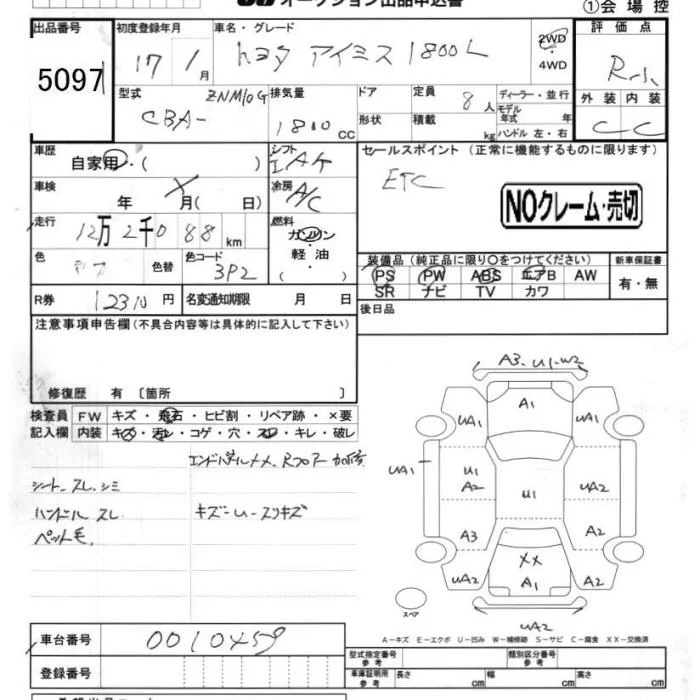 オークション出品申込書
①会場控
出品番号
5097
初度登録年月
17 1月
車名・グレード
トヨタ アイシス 1800L
2WD
4WD
評価点
R-1
外装 内装
C C
型式
CBA-
ZNM10G
排気量
1800cc
ドア
形状
定員
8人
積載
kg
ディーラー・並行
モデル年式 年
ハンドル 左・右
車歴
自家用・( )
シフト
IAT
セールスポイント (正常に機能するものに限ります)
ETC
NOクレーム・売切
車検
年 月( 日)
冷房
A/C
走行
12万2千088km
燃料
ガソリン
軽油
( )
色
色替
色コード
3P2
装備品 (純正品に限り○をつけてください)
PS PW ABS エアB AW
SR ナビ TV カワ
新車保証書
有・無
R券
12310円
名変通知期限 月 日
後日品
注意事項申告欄(不具合内容等は具体的に記入して下さい)
修復歴 有 〔箇所 〕
検査員記入欄
FW キズ・飛石・ヒビ割・リペア跡・×要
内装 キズ・汚レ・コゲ・穴・スレ・キレ・破レ
エンドパネルメメ、Rフロアー加修
シート、スレ、シミ
ハンドルスレ
キズーU-スリキズ
ペット毛、
A3、U1、W2
A1
UA1 UA1
UA1
U1
A2
U1
UA2
A3
A2
XX
A1
UA2
A2
UA2
スペア
A-キズ E-エクボ U-凹み W-補修跡 S-サビ C-腐食 XX-交換済
車台番号
0010459
登録番号
型式指定番号 参考
類別区分番号 参考
車庫証明用 参考
長さ cm
幅 cm
高さ cm